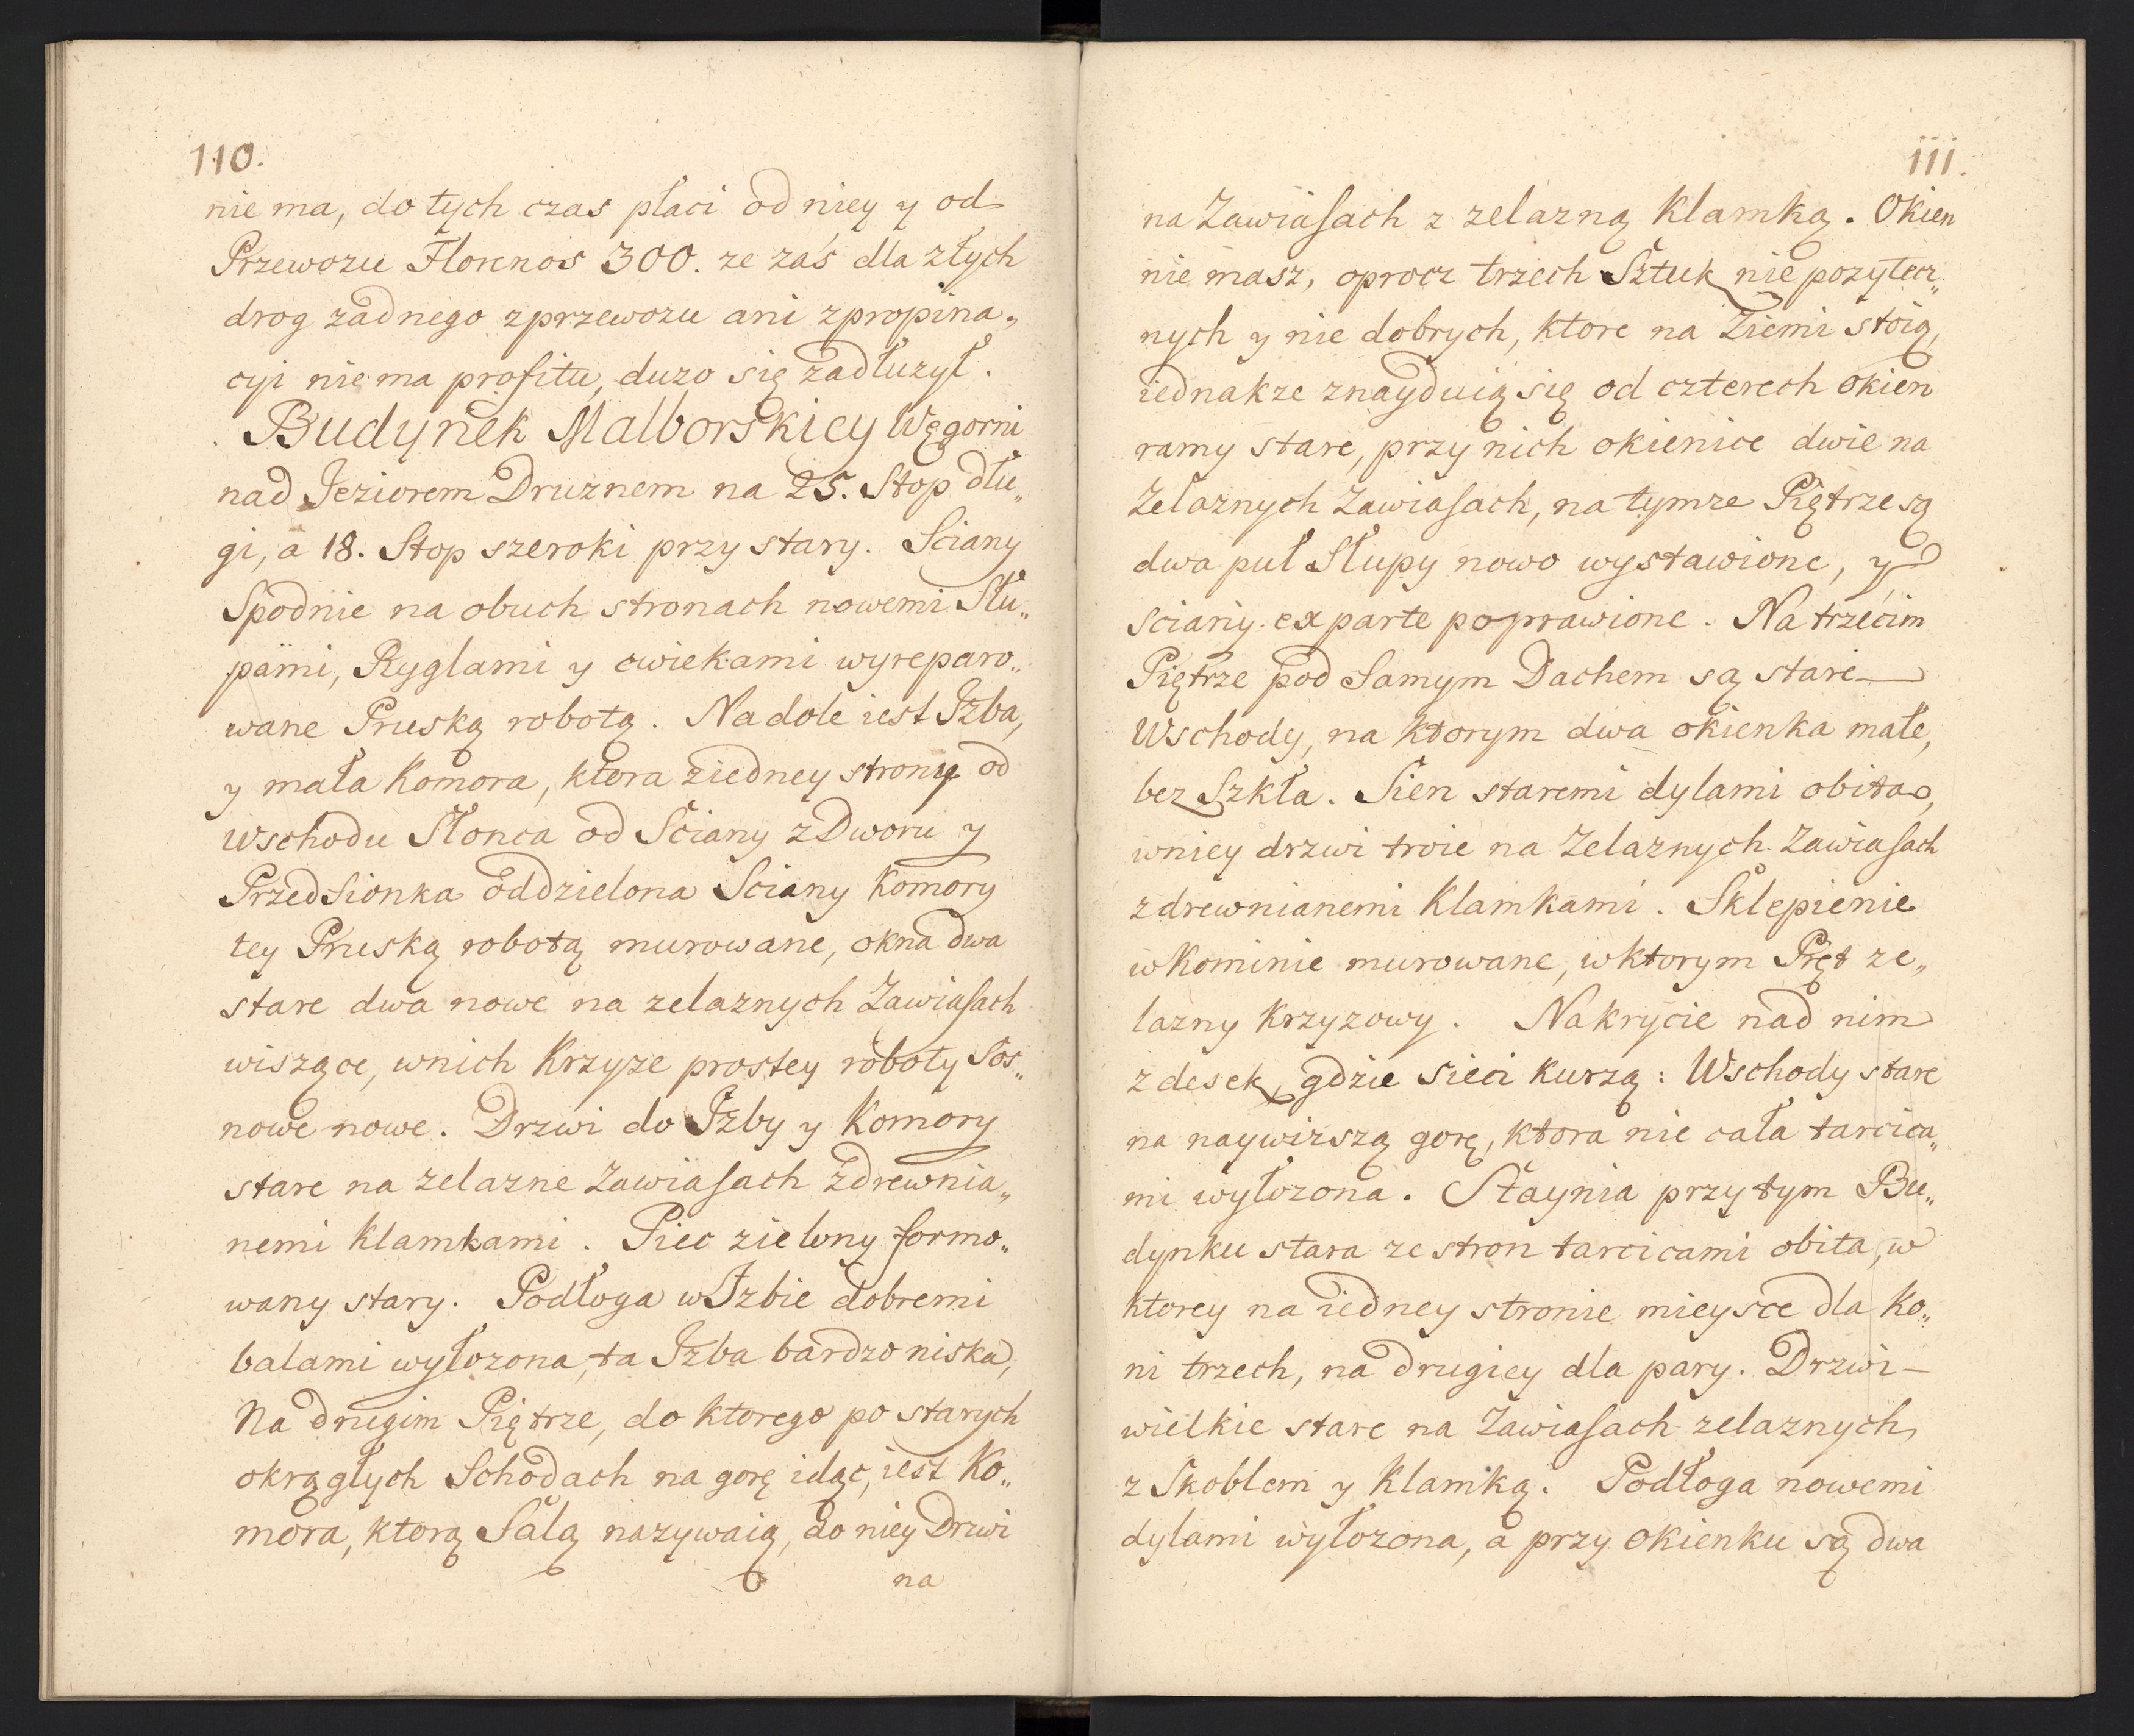 110.
nie ma, do tych czas płaci od niey y od
Przewozu Florenos 300. ze zaś dla złych
drog zadnego zprzewozu ani zpropina„
cyi nie ma profitu, duzo się zadłuzył.
Budynek Malborskiey Węgorni
nad Jeziorem Druznem na 25. Stop dłu„
gi, a 18. Stop szeroki przy stary. Sciany
Spodnie na obuch stronach nowemi Słu„
pami, Ryglami y cwiekami wyreparo„
wane Pruską robotą. Na dole iest Jzba,
y mała Komora, ktora ziedney strony od
Wschodu Słonca od Sciany z Dworu y
Przedsionka oddzielona Sciany Komory
tey Pruską robotą murowane, okna dwa
stare dwa nowe na zelaznych Zawiasach
wiszące, wnich Krzyze prostey roboty Sos„
nowe nowe. Drzwi do Jzby y Komory
stare na zelazne Zawiasach zdrewnia„
nemi Klamkami. Piec zielony formo„
wany stary. Podłoga w Jzbie dobremi
balami wyłozona, ta Jzba bardzo niska,
Na drugim Piętrze, do ktorego po starych
okrągłych Schodach na gorę idąc, iest Ko„
mora, ktorą Salą nazywaią, do niey Drzwi
na
111.
na Zawiasach z zelazną Klamką. Okien
nie masz, oprocz trzech Sztuk nie pozytecz„
nych y nie dobrych, ktore na Ziemi stoią,
iednakze znayduią się od czterech okien
ramy stare, przy nich okienice dwie na
Zelaznych Zawiasach, na tymze Piętrze są
dwa puł Słupy nowo wystawione, y
sciany ex parte poprawione. Na trzecim
Piętrze pod Samym Dachem są stare
Wschody, na ktorym dwa okienka małe,
bez Szkła. Sien staremi dylami obita,
wniey drzwi troie na Zelaznych Zawiasach
zdrewnianemi Klamkami. Sklepienie
w Kominie murowane, wktorym Pręt ze„
lazny Krzyzowy. Nakrycie nad nim
z desek, gdzie sieci Kurzą: Wschody stare
na naywizszą gorę, ktora nie cała tarcica„
mi wyłozona. Staynia przy tym Bu„
dynku stara ze stron tarcicami obita, w
ktorey na iedney stronie mieysce dla Ko„
ni trzech, na drugiey dla pary. Drzwi
wielkie stare na Zawiasach zelaznych
z Skoblem y Klamką. Podłoga nowemi
dylami wyłozona, a przy okienku są dwa